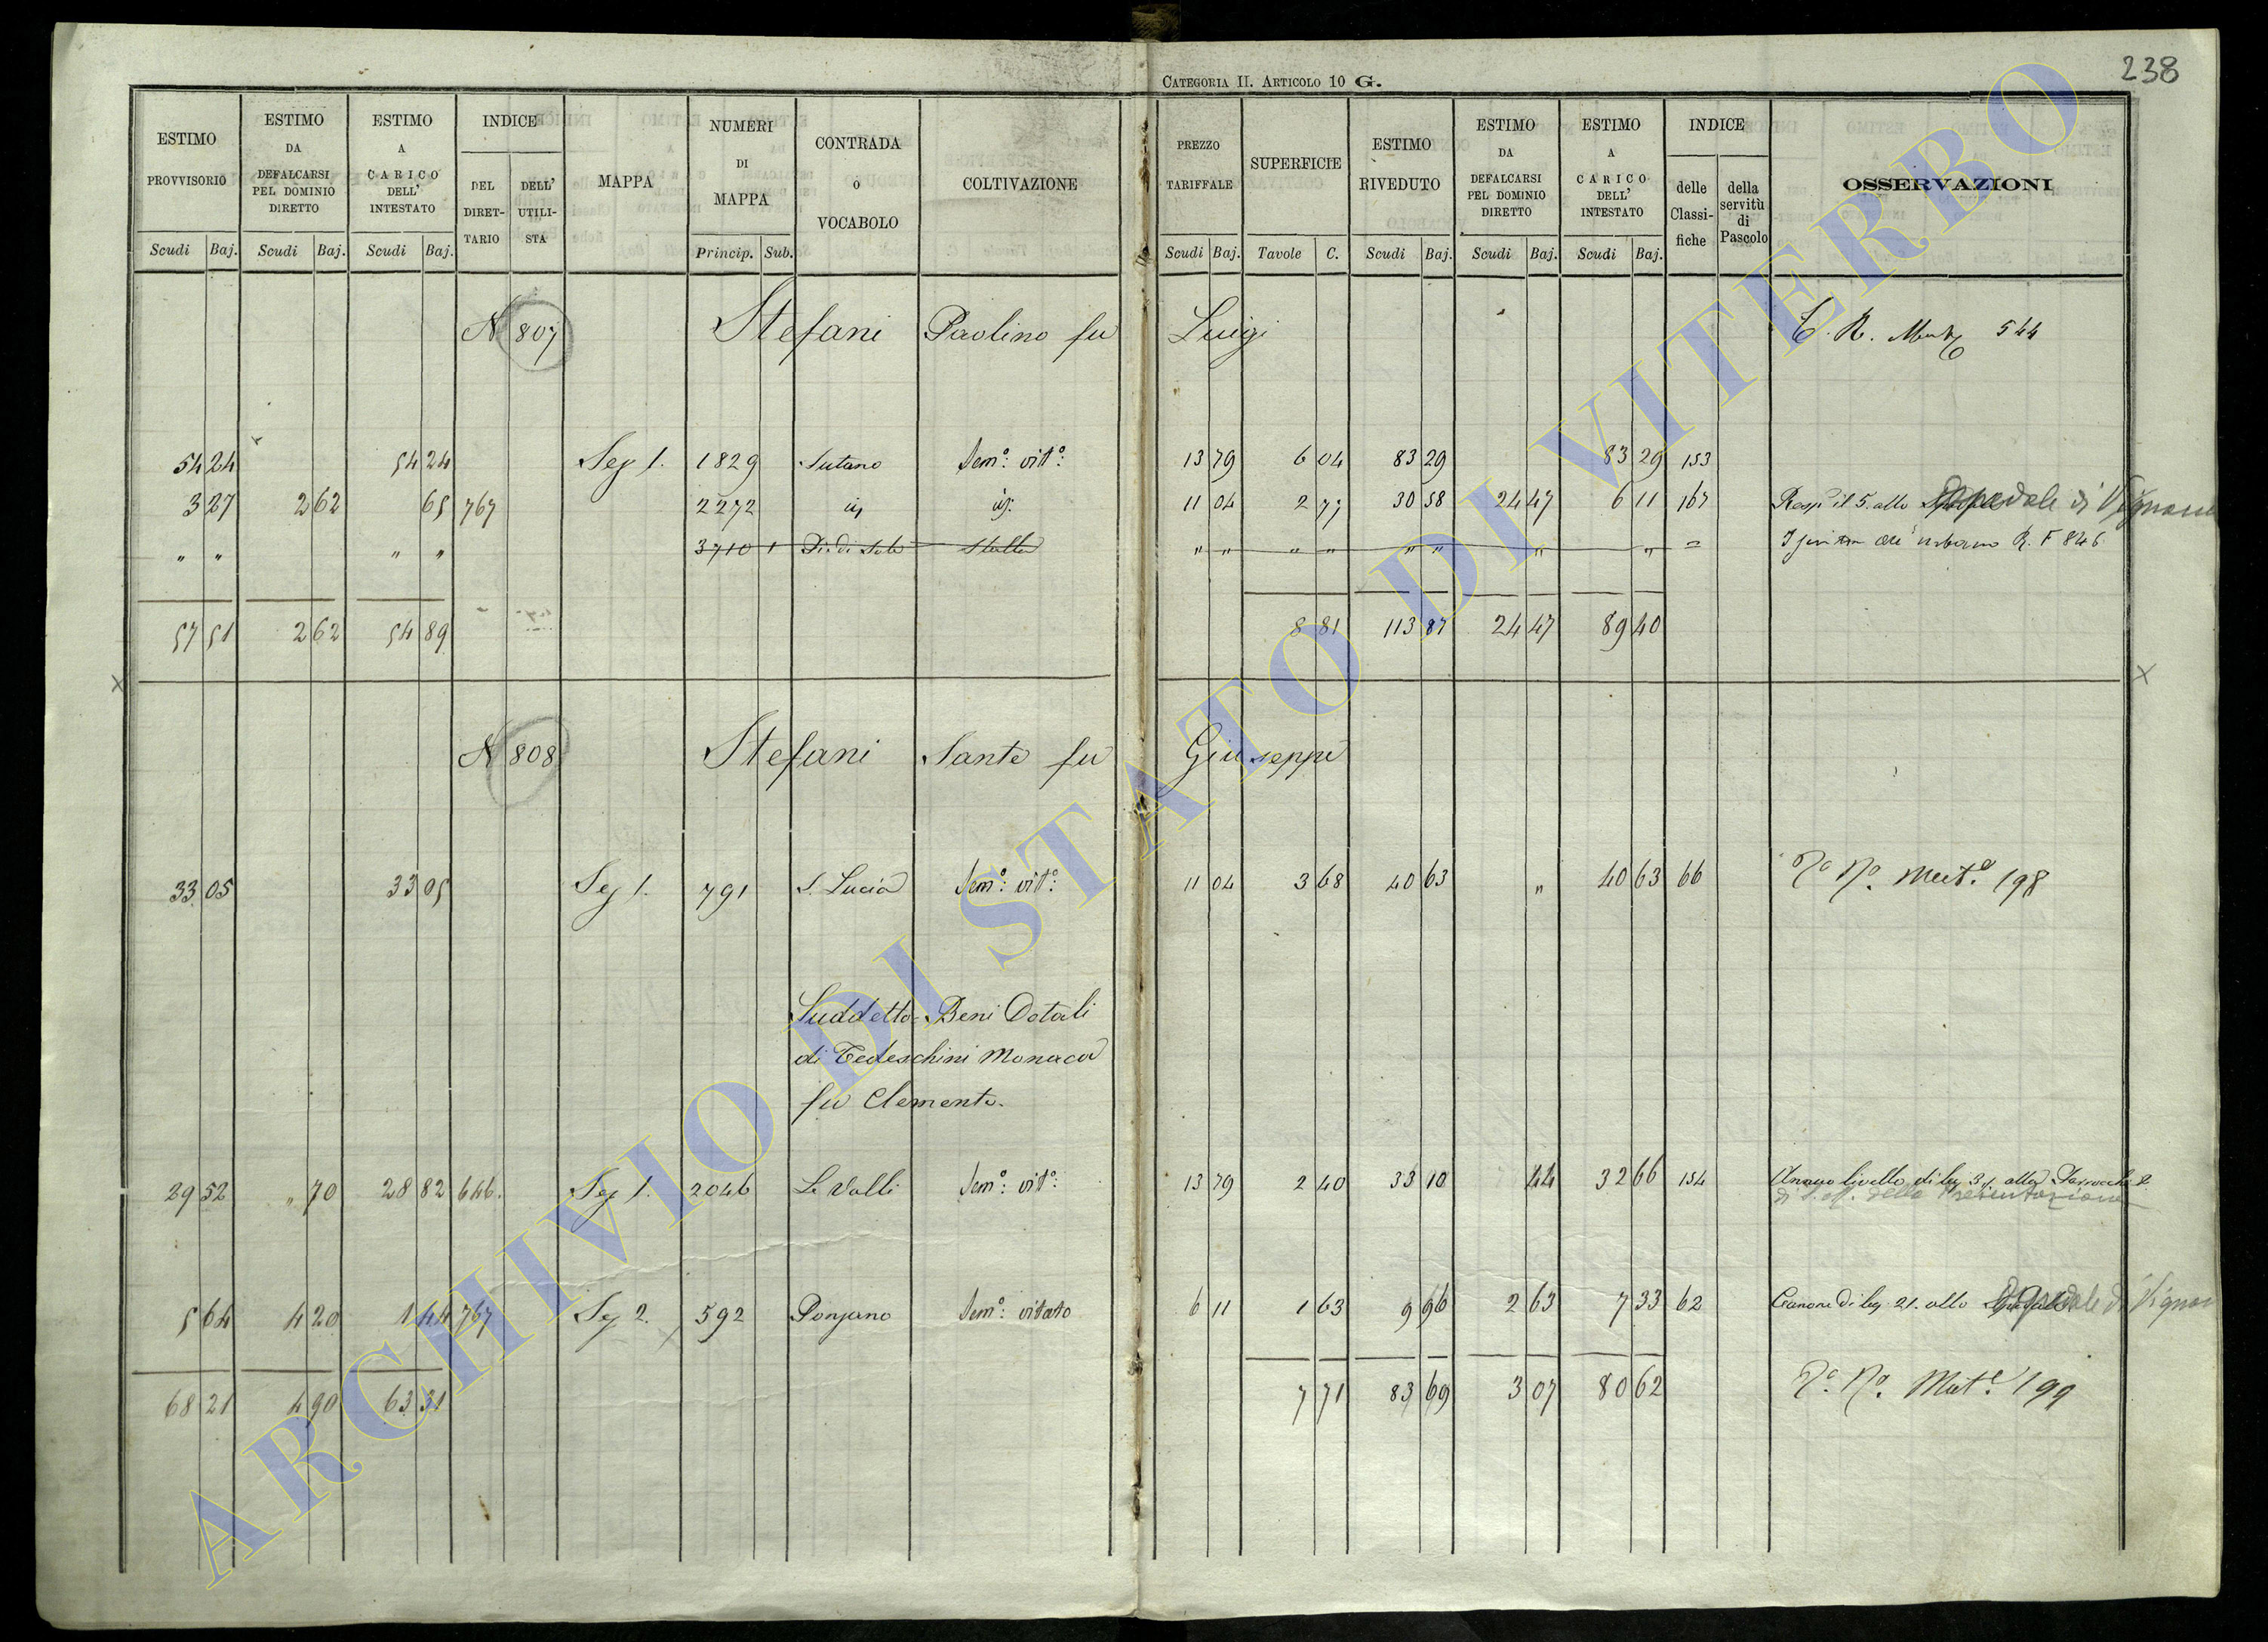 238
CATEGORIA II. ARTICOLO 10 G.
ESTIMO PROVVISORIO Scudi Baj.
ESTIMO DA DEFALCARSI PEL DOMINIO DIRETTO Scudi Baj.
ESTIMO A CARICO DELL' INTESTATO Scudi Baj.
INDICE DEL DIRET-TARIO DELL' UTILI-STA
MAPPA
NUMERI DI MAPPA Princip. Sub.
CONTRADA o VOCABOLO
COLTIVAZIONE
PREZZO TARIFFALE Scudi Baj.
SUPERFICIE Tavole C.
ESTIMO RIVEDUTO Scudi Baj.
ESTIMO DA DEFALCARSI PEL DOMINIO DIRETTO Scudi Baj.
ESTIMO A CARICO DELL' INTESTATO Scudi Baj.
INDICE delle Classi-fiche della servitù di Pascolo
OSSERVAZIONI
N 807 Stefani Paolino fu Luigi 544
54 24 54 24 Sez 1. 1829 Sutano Sem.o vit.o 13 79 6 04 83 29 83 29 153
3 27 2 62 65 767 2272 id id. 11 04 2 77 30 58 24 47 6 11 167 Resp il 5. allo Ospedale di Vignan
" " " " 3710 1 Stalla " " " " " " " " = urbano R. F 846
57 51 2 62 54 89 8 81 113 87 24 47 89 40
N 808 Stefani Sante fu Giuseppe
33 05 33 05 Sez 1. 791 S. Lucia Sem.o vit.o 11 04 3 68 40 63 " 40 63 66 Mut.e 198
Suddetto Beni Dotali
di Tedeschini Monaca
fu Clemente.
29 52 " 70 28 82 646. Sez 1. 2046 Le Valli Sem.o vit.o 13 79 2 40 33 10 44 32 66 154 Annuo livello di alla Parrocchia
di S. M. della Presentazione
5 64 4 20 1 44 767 Sez 2. 592 Ponzano Sem.o vitato 6 11 1 63 9 96 2 63 7 33 62 Canone di 21. allo Ospedale di Vignan
68 21 4 90 63 31 7 71 83 69 3 07 80 62 Mut.e 199
ARCHIVIO DI STATO DI VITERBO